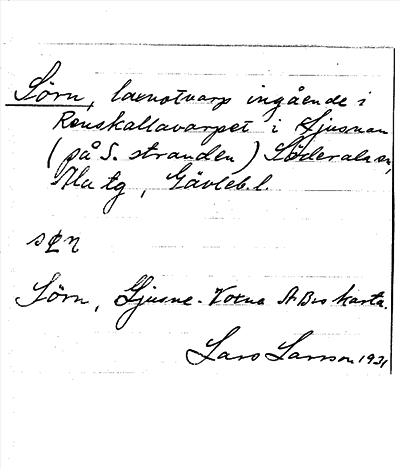 Sörn, laxnotvarp ingående i
Renskallavarpet i Ljusnan
(på S. stranden) Söderala sn,
Ala tg, Gävleb. l.
Sörn, Ljusne-Voxna ABs karta.
Lars Larsson 1931